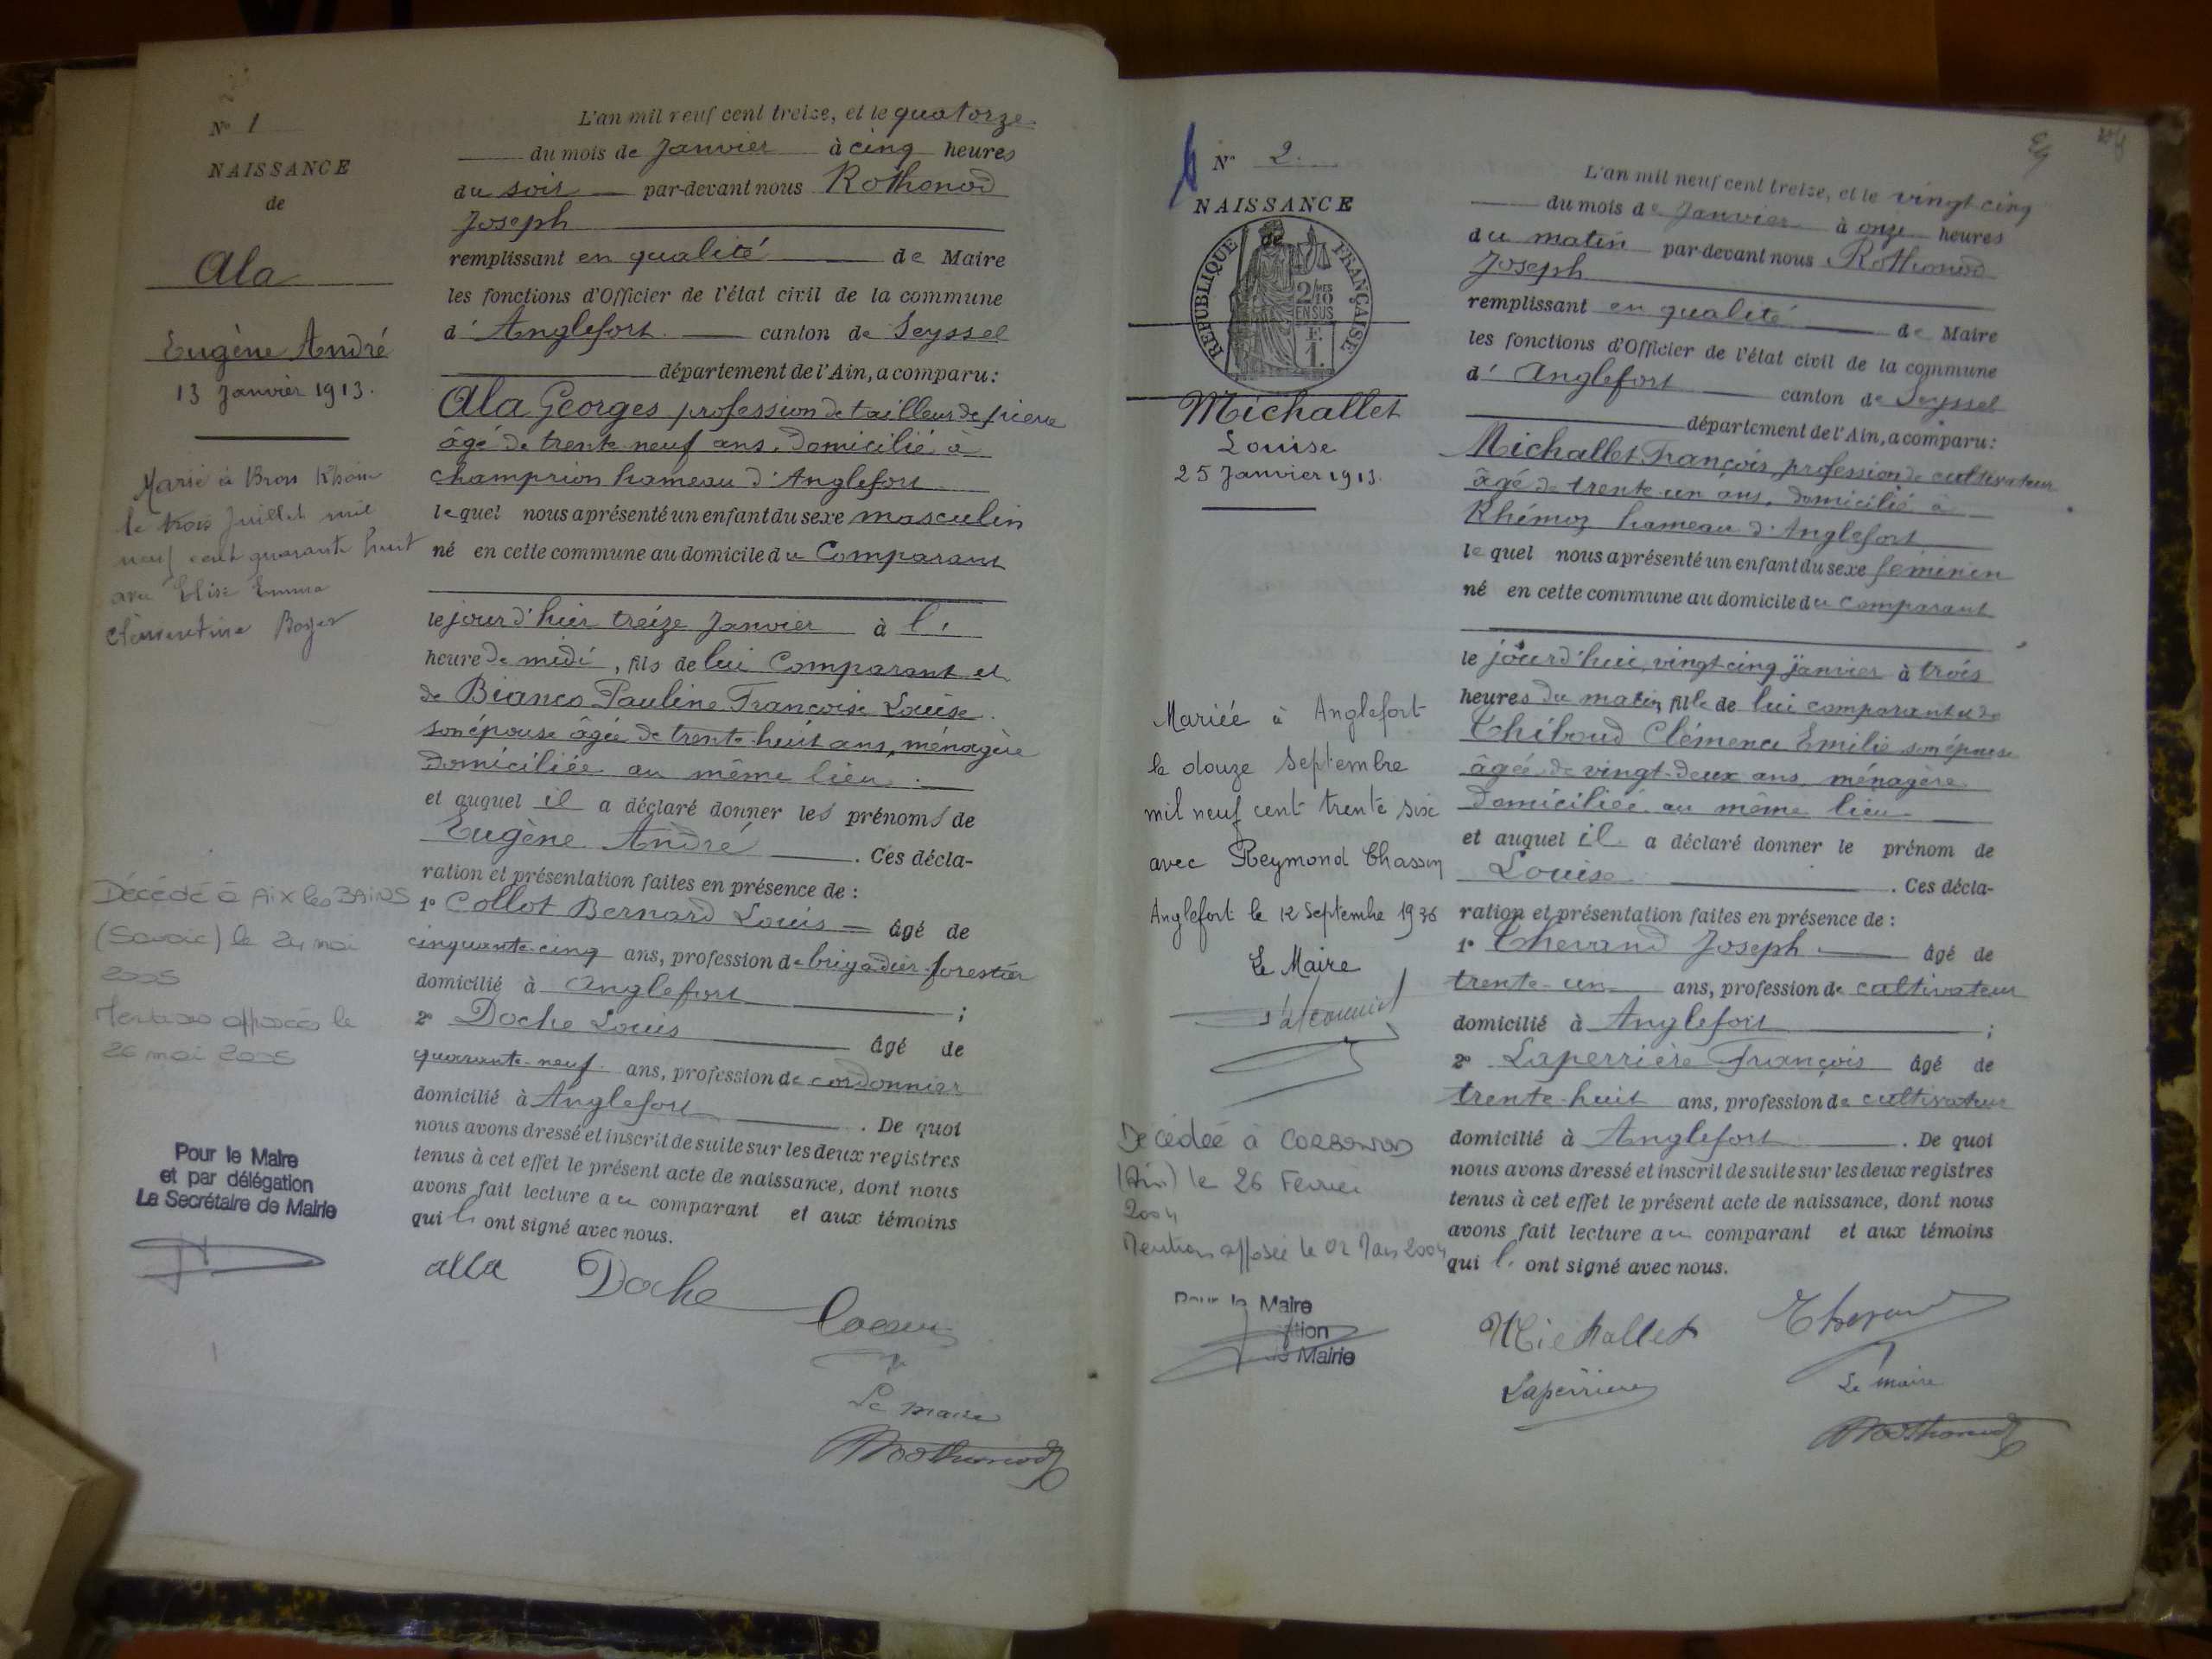 N° 1
NAISSANCE
de
Ala
Eugène André
13 Janvier 1913.
Marié à Bron Rhône
le trois Juillet mil
neuf cent quarante huit
avec Elise Emma
Clémentine Boyer
Décédé à AIX les BAINS
(Savoie) le 24 mai
2005
Mention apposée le
26 mai 2005
Pour le Maire
et par délégation
La Secrétaire de Mairie
L'an mil neuf cent treize, et le quatorze
du mois de Janvier à cinq heures
du soir par-devant nous Rothonod
Joseph
remplissant en qualité de Maire
les fonctions d'Officier de l'état civil de la commune
d' Anglefort canton de Seyssel
département de l'Ain, a comparu:
Ala Georges profession de tailleur de pierre
âgé de trente neuf ans, domicilié à
champrion hameau d'Anglefort
lequel nous a présenté un enfant du sexe masculin
né en cette commune au domicile du Comparant
le jour d'hier treize Janvier à l'
heure de midi, fils de lui Comparant et
de Bianco Pauline Françoise Louise
son épouse âgée de trente-huit ans, ménagère
domiciliée au même lieu.
et auquel il a déclaré donner les prénoms de
Eugène André . Ces décla-
ration et présentation faites en présence de :
1° Collot Bernard Louis âgé de
cinquante-cinq ans, profession de brigadier-forestier
domicilié à Anglefort ;
2° Doche Louis âgé de
quarante-neuf ans, profession de cordonnier
domicilié à Anglefort . De quoi
nous avons dressé et inscrit de suite sur les deux registres
tenus à cet effet le présent acte de naissance, dont nous
avons fait lecture au comparant et aux témoins
qui l' ont signé avec nous.
alla Doche
Le maire
Rothonod
N° 2.
NAISSANCE
de
REPUBLIQUE FRANÇAISE
2/10
EN SUS
F.
1.
Michallet
Louise
25 Janvier 1913.
Mariée à Anglefort
le douze Septembre
mil neuf cent trente six
avec Reymond Chasson
Anglefort le 12 Septembre 1936
Le Maire
Décédée à CORBONOD
(Ain) le 26 Février
2004
Mention apposée le 02 Mars 2004
Pour le Maire
Mairie
L'an mil neuf cent treize, et le vingt cinq
du mois de Janvier à onze heures
du matin par-devant nous Rothonod
Joseph
remplissant en qualité de Maire
les fonctions d'Officier de l'état civil de la commune
d' Anglefort canton de Seyssel
département de l'Ain, a comparu:
Michallet François profession de cultivateur
âgé de trente-un ans, domicilié à
Rhémoz hameau d'Anglefort
lequel nous a présenté un enfant du sexe féminin
né en cette commune au domicile du comparant
le jourd'hui, vingt-cinq janvier à trois
heures du matin, fille de lui comparant et de
Thiboud Clémence Emilie son épouse
âgée de vingt-deux ans, ménagère
domiciliée au même lieu
et auquel il a déclaré donner le prénom de
Louise . Ces décla-
ration et présentation faites en présence de :
1° Thevand Joseph âgé de
trente-un ans, profession de cultivateur
domicilié à Anglefort ;
2° Laperrière François âgé de
trente-huit ans, profession de cultivateur
domicilié à Anglefort . De quoi
nous avons dressé et inscrit de suite sur les deux registres
tenus à cet effet le présent acte de naissance, dont nous
avons fait lecture au comparant et aux témoins
qui l' ont signé avec nous.
Michallet Thevand
Laperrière Le maire
Rothonod